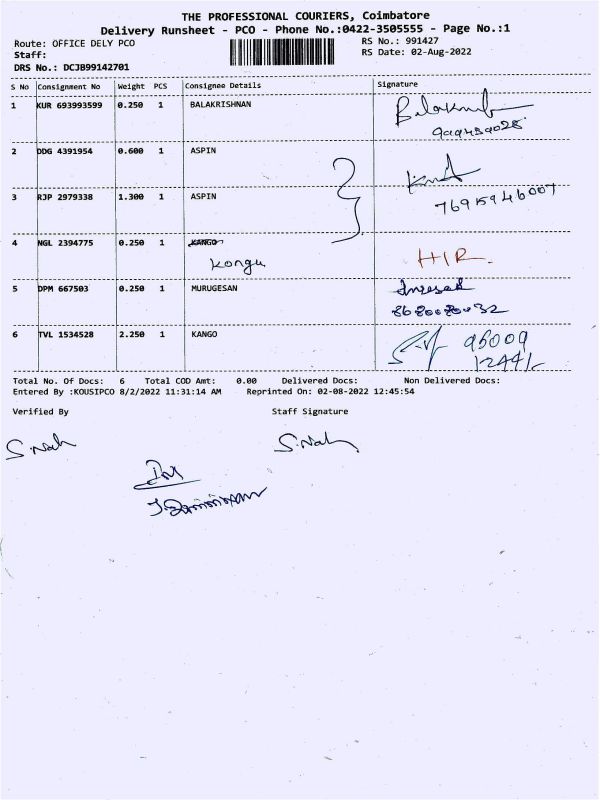 THE PROFESSIONAL COURIERS, Coimbatore
Delivery Runsheet - PCO - Phone No.:0422-3505555 - Page No.:1
Route: OFFICE DELY PCO RS No.: 991427
Staff: RS Date: 02-Aug-2022
DRS No.: DCJB99142701
S No Consignment No Weight PCS Consignee Details Signature
1 KUR 693993599 0.250 1 BALAKRISHNAN
2 DDG 4391954 0.600 1 ASPIN
3 RJP 2979338 1.300 1 ASPIN
7695946007
4 NGL 2394775 0.250 1 KANGO HIR.
Kongu
5 DPM 667503 0.250 1 MURUGESAN
8680080032
6 TVL 1534528 2.250 1 KANGO 95009
Total No. Of Docs: 6 Total COD Amt: 0.00 Delivered Docs: Non Delivered Docs:
Entered By :KOUSIPCO 8/2/2022 11:31:14 AM Reprinted On: 02-08-2022 12:45:54
Verified By Staff Signature